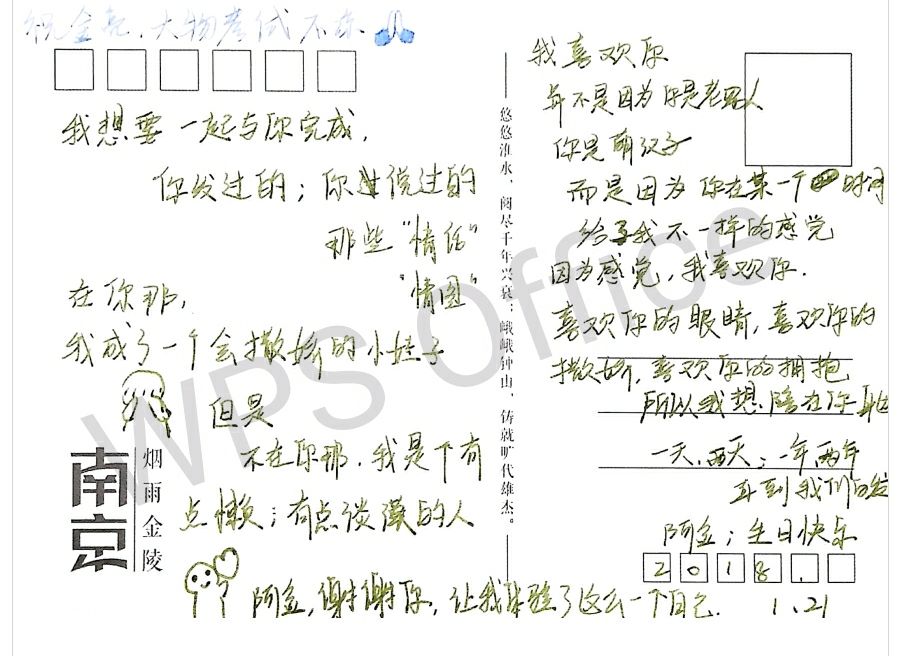 祝金亮,大物考试不挂
我想要一起与你完成,
你发过的;你说过的
那些“情话”
“情图”
在你那,
我成了一个会撒娇的小妹子
但是
不在你那,我是下有
点懒;有点淡漠的人
阿金,谢谢你,让我体验了这么一个自己.
南京
烟雨金陵
悠悠淮水,阅尽千年兴衰;峨峨钟山,铸就旷代雄杰。
我喜欢你
并不是因为你是老男人
你是萌汉子
而是因为你在某一个时间
给予我不一样的感觉
因为感觉,我喜欢你.
喜欢你的眼睛,喜欢你的
撒娇,喜欢你的拥抱
所以我想陪在你身边
一天,两天;一年两年
再到我们白发
阿金;生日快乐
2018.
1.21
WPS Office